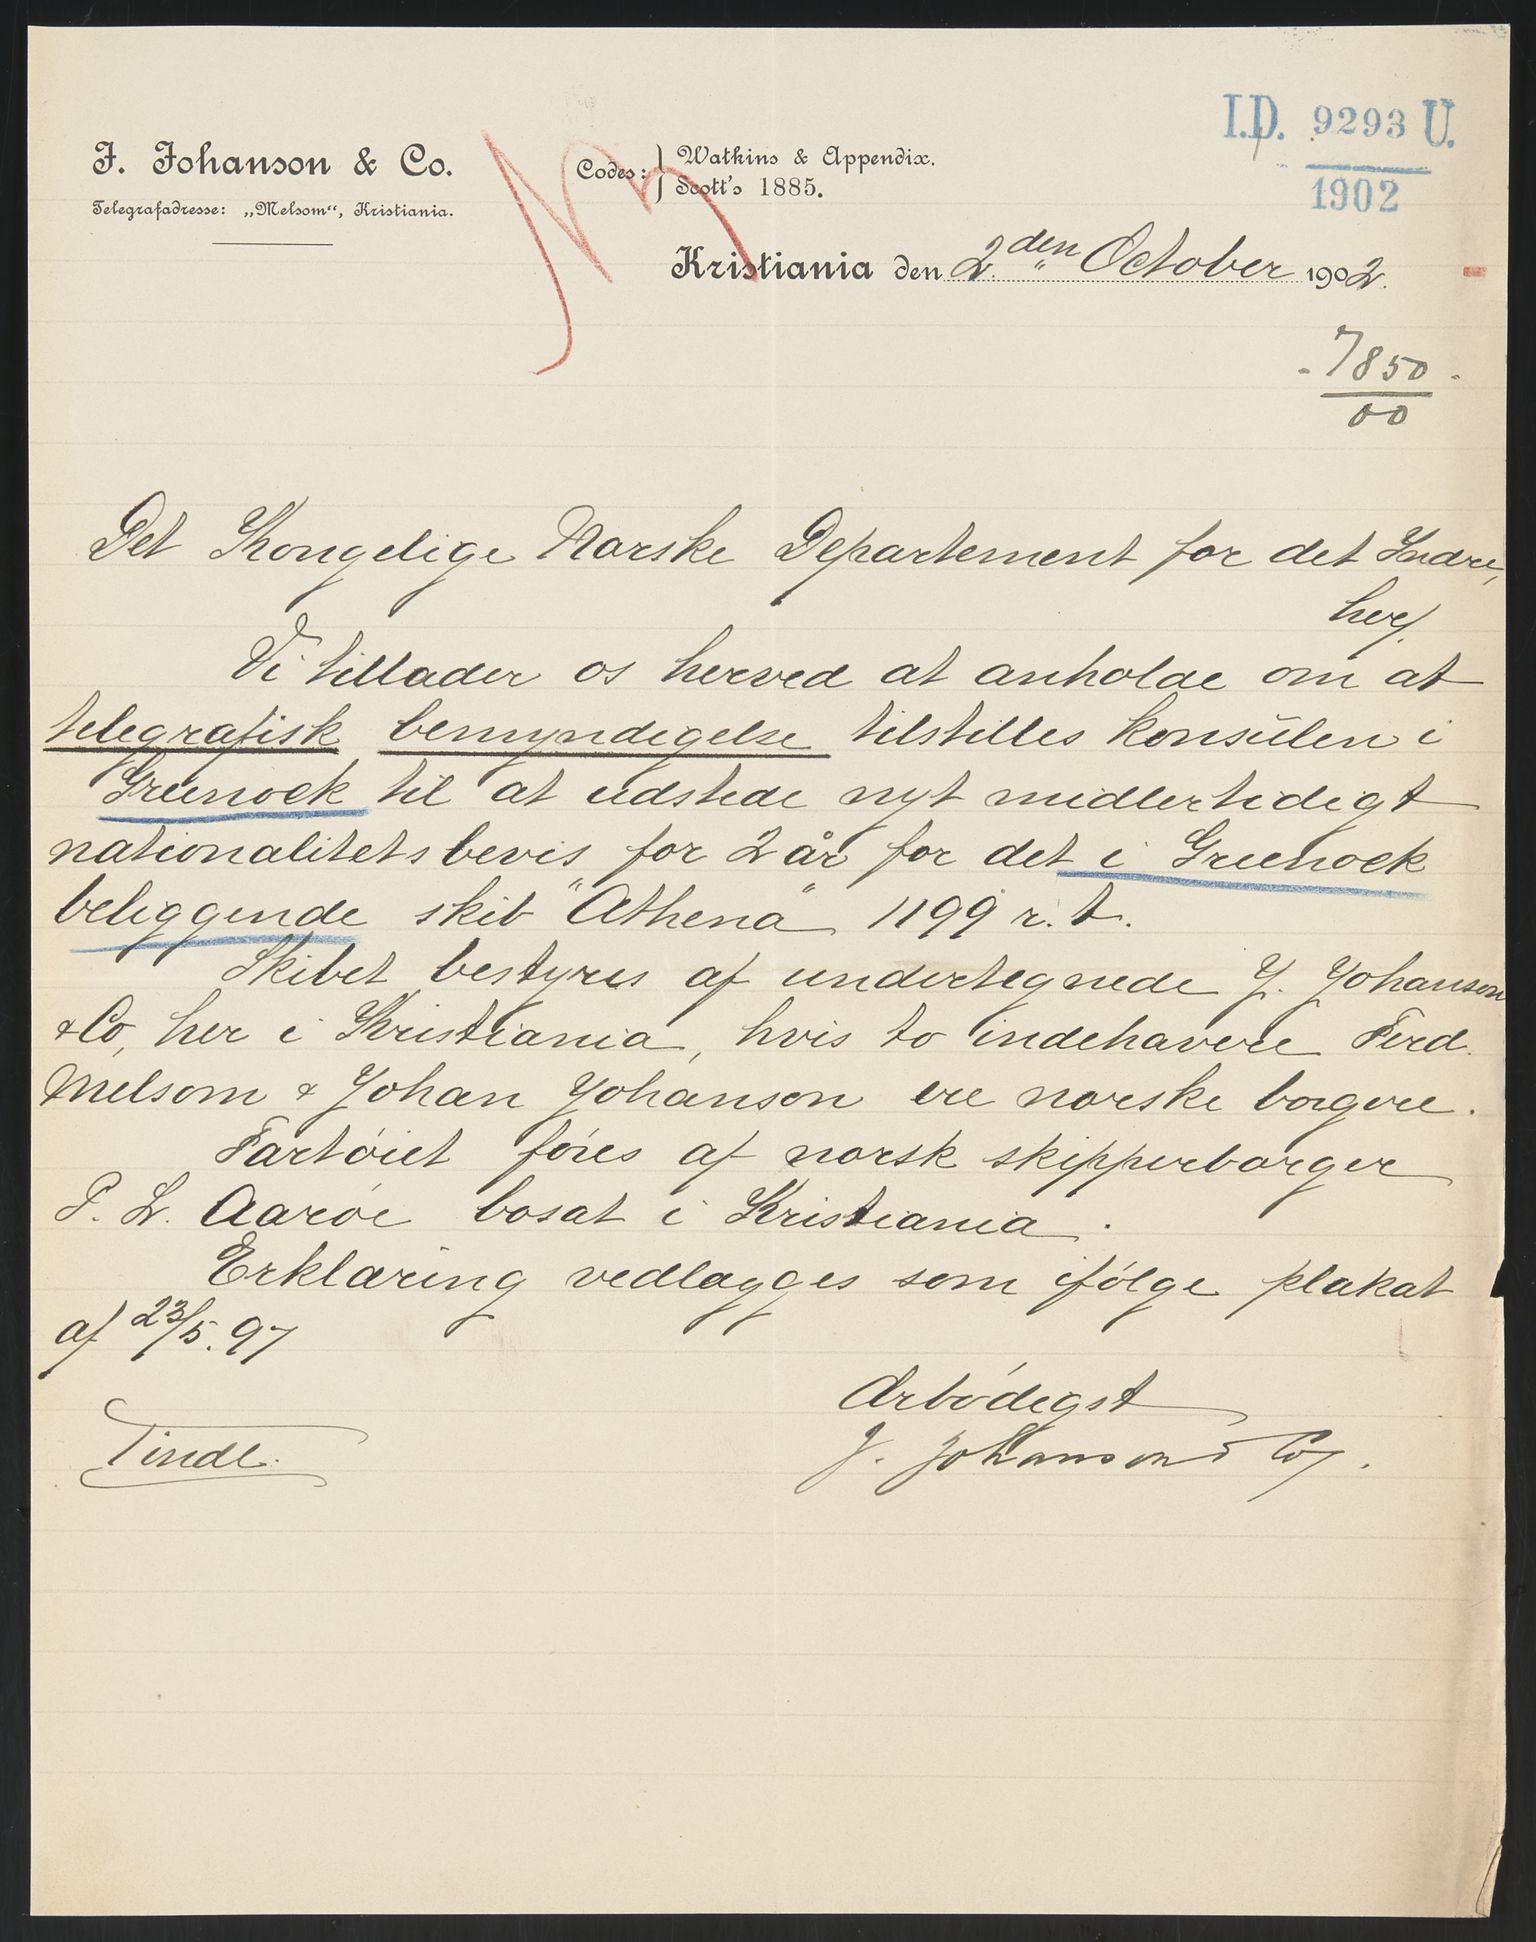 I.D. 9293 U.
1902
J. Johanson & Co.
Telegrafadresse: „Melsom“, Kristiania.
Codes: Watkins & Appendix.
Scott's 1885.
Kristiania den 2den October 1902.
- 7850 -
00
Det Kongelige Norske Departement for det Indre,
her.
Vi tillader os herved at anholde om at
telegrafisk bemyndigelse tilstilles konsulen i
Greenock til at udstede nyt midlertidigt
nationalitetsbevis for 2 år for det i Greenock
beliggende skib "Athena" 1199 r. t.
Skibet bestyres af undertegnede J. Johanson
& Co, her i Kristiania, hvis to indehavere Ferd.
Melsom & Johan Johanson ere norske borgere.
Fartóiet fóres af norsk skipperborger
P. L. Aaróe bosat i Kristiania.
Erklæring vedlægges som ifólge plakat
af 23/5.97
Arbódigst
J. Johanson & Co.